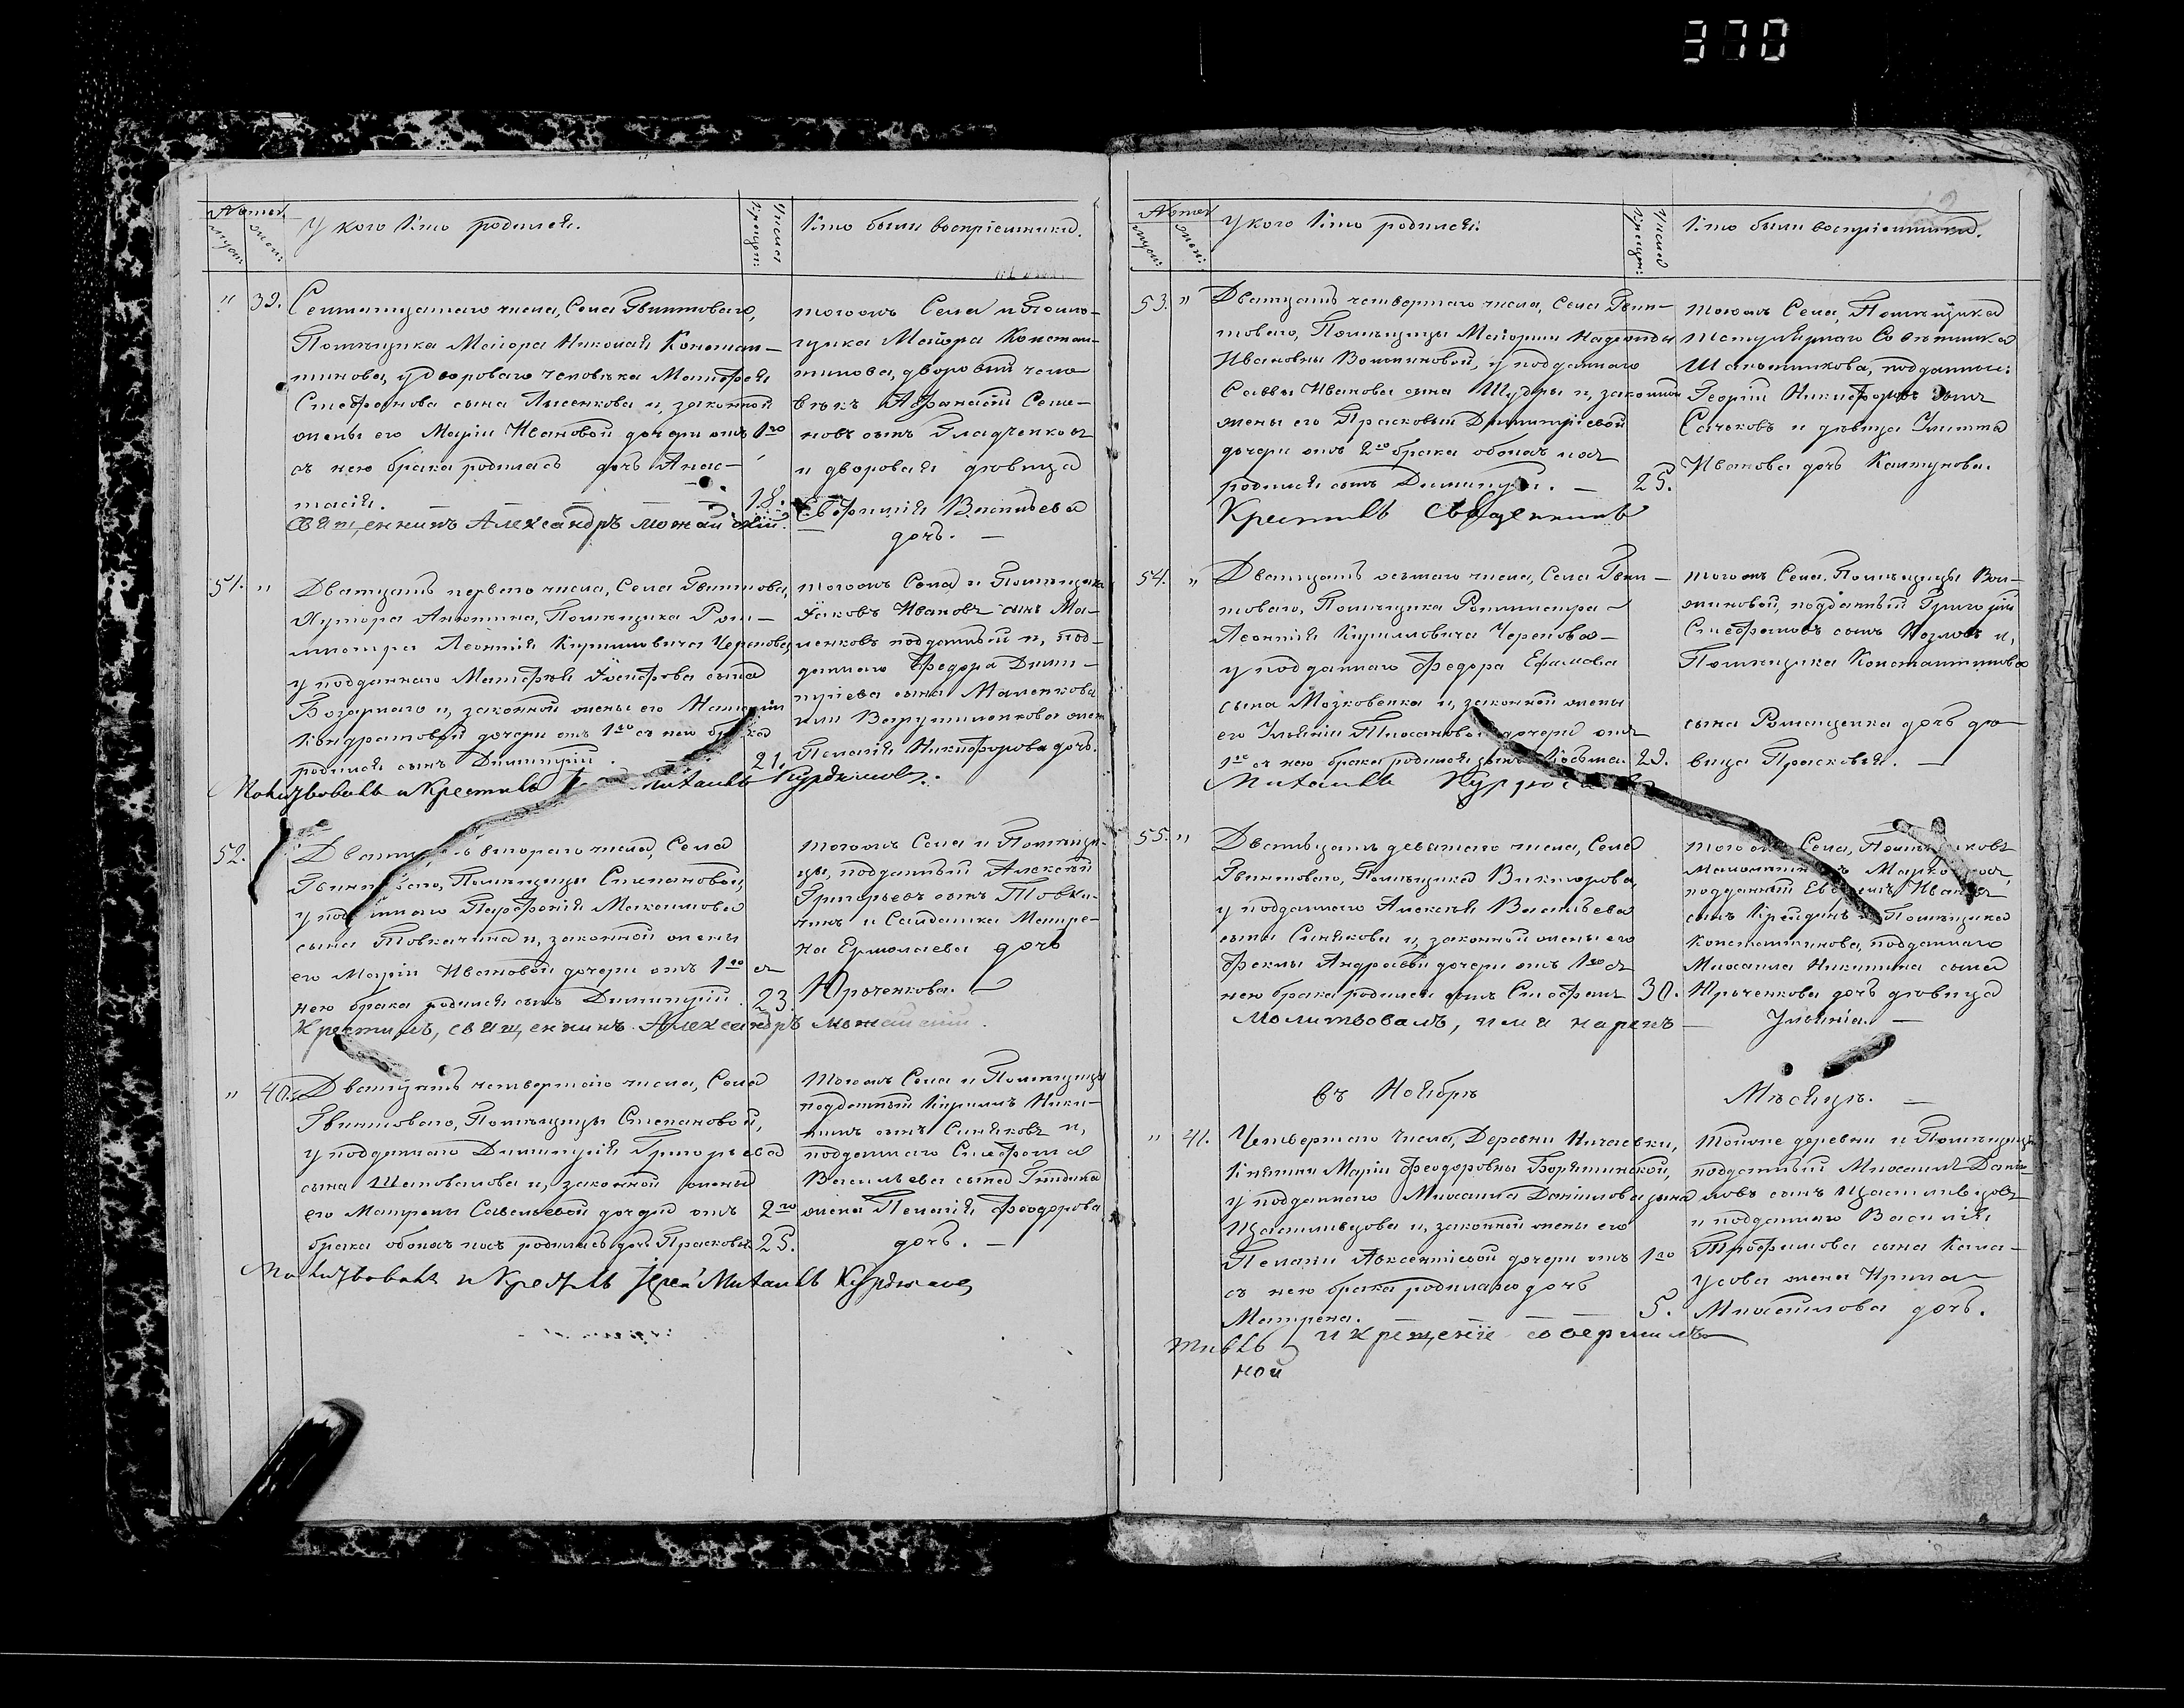 370
Номер
У кого кто родился.
Число крещен:
Кто были воспріемники.
муж: жен:
" 39. Семнатцатаго числа, Села Гвинтоваго,
Помѣщика Маіора Николая Констан-
тинова, у двороваго человѣка Матфея
Стефанова сына Лисенкова и, законной
жены его Маріи Ивановой дочери отъ 1го
съ нею брака родилась дочь Анас-
тасія. 18.
тогожъ Села и Помѣ-
щика Маіора Констан-
тинова, дворовый чело-
вѣкъ Афанасій Семе-
новъ сынъ Гладченковъ
и дворовая дѣвица
Евфимія Васильева
дочь.
Священникъ Александръ
51. " Дватцать перваго числа, Села Гвинтова,
Хутора Анютина, Помѣщика Рот-
мистра Леонтія Кириловича Черепова,
у подданнаго Матфея Іосифова сына
Базарнаго и, законной жены его Наталіи
Кондратовой дочери отъ 1го съ нею брака
родился сынъ Димитрій. 21.
тогожъ Села и Помѣщика
Іаковъ Ивановъ сынъ Ма-
ленковъ подданный и, под-
даннаго Федора Дими-
тріева сына Маленкова
жена
Пелагія Никифорова дочь.
Молитвовалъ и Крестилъ Михаилъ Курдюмовъ.
52. Дватцать втораго числа, Села
Гвинтоваго, Помѣщицы Степановой,
у подданнаго Парфенія Максимова
сына Товкачина и, законной жены
его Маріи Ивановой дочери отъ 1го съ
нею брака родился сынъ Димитрій. 23.
тогожъ Села и Помѣщи-
цы, подданный Алексѣй
Григорьевъ сынъ Товка-
чинъ и Солдатка Матре-
на Ермолаева дочь
Юрченкова.
Крестилъ, священникъ Александръ
" 40. Дватцать четвертаго числа, Села
Гвинтоваго, Помѣщицы Степановой,
у подданнаго Димитрія Григорьева
сына Шаповалова и, законной жены
его Матрены Савельевой дочери отъ 2го
брака обоихъ ихъ родилась дочь Прасковья. 25.
тогожъ Села и Помѣщицы
подданный Кирилъ Ники-
тинъ сынъ Синяковъ и,
подданнаго Стефана
Васильева сына
жена Пелагія Феодорова
дочь.
Молитвовалъ и Крестилъ Іерей Михаилъ Курдюмовъ
Номер
У кого кто родился:
Число крещен:
Кто были воспріемники.
муж: жен:
53. " Дватцать четвертаго числа, Села Гвин-
товаго, Помѣщицы Маіорши Надежды
Ивановны Волжиновой, у подданнаго
Саввы Иванова сына Шудры и, законной
жены его Прасковьи Димитріевой
дочери отъ 2го брака обоихъ ихъ
родился сынъ Димитрій. 25.
тогожъ Села, Помѣщика
Титулярнаго Совѣтника
подданные:
Георгій Никифоровъ сынъ
и дѣвица
Иванова дочь Калтукова.
Крестилъ Священникъ
54. " Дватцать осьмаго числа, Села Гвин-
товаго, Помѣщика Ротмистра
Леонтія Кириловича Черепова
у подданнаго Федора Ефимова
сына Мозковенка и, законной жены
его Ульяніи дочери отъ
1го съ нею брака родился сынъ Косьма. 29.
тогожъ Села, Помѣщицы Вол-
жиновой, подданный Григорій
Стефановъ сынъ Козловъ и,
Помѣщика Константинова
сына Романценка дочь дѣ-
вица Прасковья.
Михаилъ
55. " Дватцать девятаго числа, Села
Гвинтоваго, Помѣщика Викторова,
у подданнаго Алексѣя Васильева
сына Синякова и, законной жены его
Феклы Андреевой дочери отъ 1го съ
нею брака родился сынъ Стефанъ 30.
тогожъ Села,
подданный Ивановъ
сынъ и Помѣщика
Константинова, подданнаго
Михаила Никитина сына
Юрченкова дочь дѣвица
Ульянія.
Молитвовалъ, имя нарекъ
въ Ноябрѣ Мѣсяцѣ.
" 41. Четвертаго числа, Деревни Ничаевки,
Княгини Маріи Феодоровны Борятинской,
у подданнаго Михаила Данилова сына
Щастливцова и, законной жены его
Пелагіи Авксентіевой дочери отъ 1го
съ нею брака родилась дочь
Матрена. 5.
тойже деревни и Помѣщицы
подданный Михаилъ Дани-
ловъ сынъ Щастливцовъ
и подданнаго Василія
Трофимова сына Кала-
усова жена Ирина
Михайлова дочь.
и крещеніе совершилъ
ной